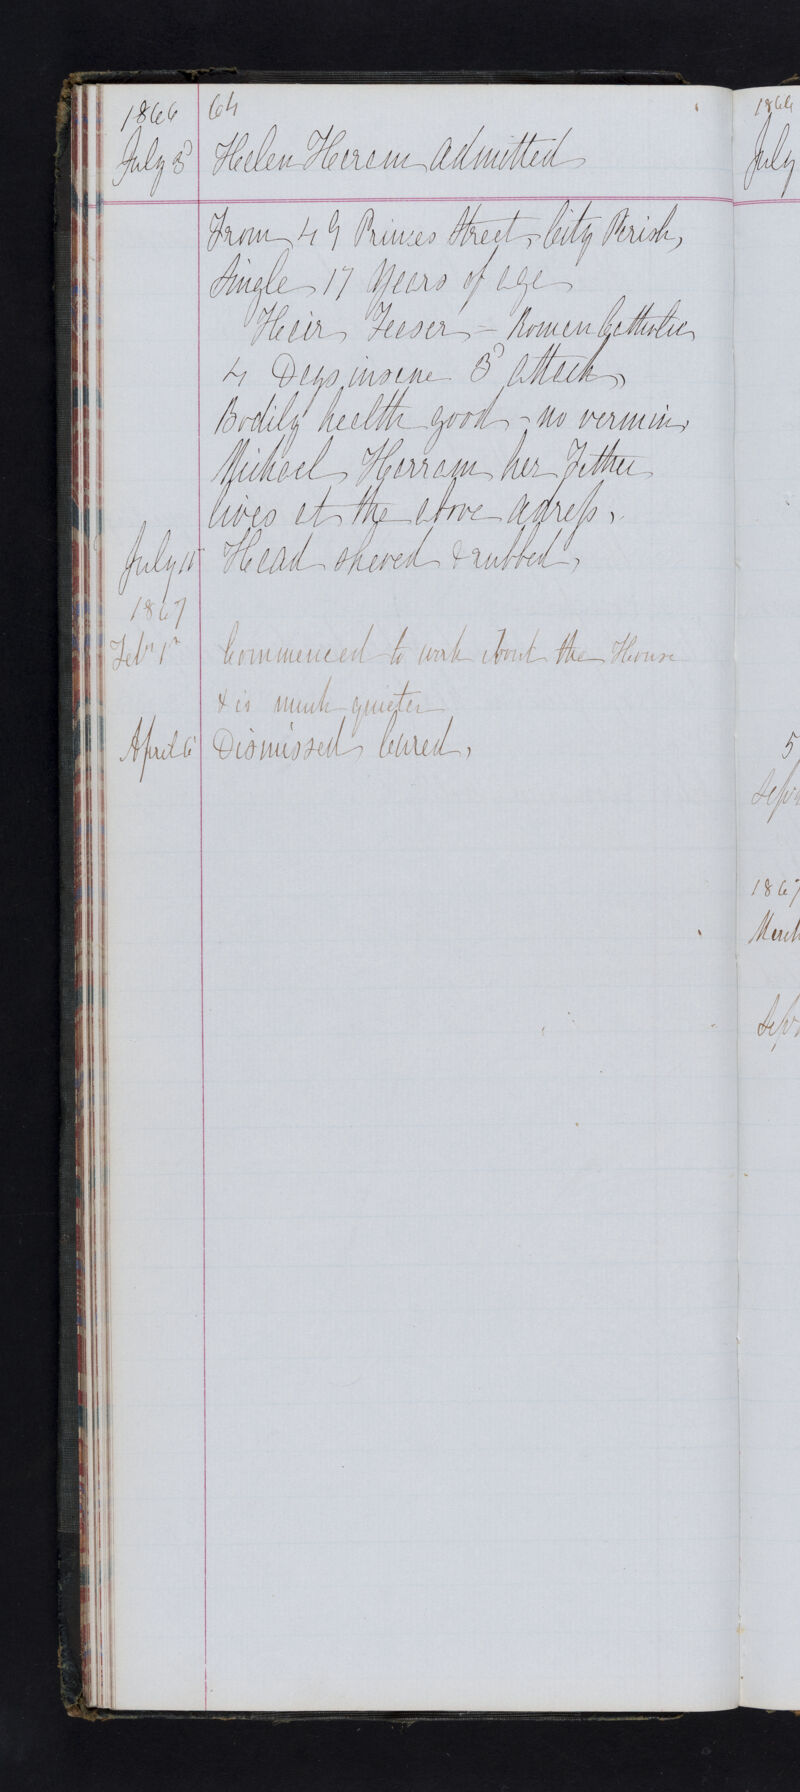 1866 64
July 3d Helen Haram admitted
From 49 Princes Street, City Parish,
Single 17 Years of age
Hair Teaser - Roman Catholic
4 Days insane 3d attack,
Bodily health good - no vermin,
Michael Harram her Father
lives at the above adress,
July 15 Head shaved & rubbed,
1867
Febr 1st Commenced to work about the House
& is much quieter
April 6 Dismissed Cured,
1866
July
5
Sep
1867
March
Sep